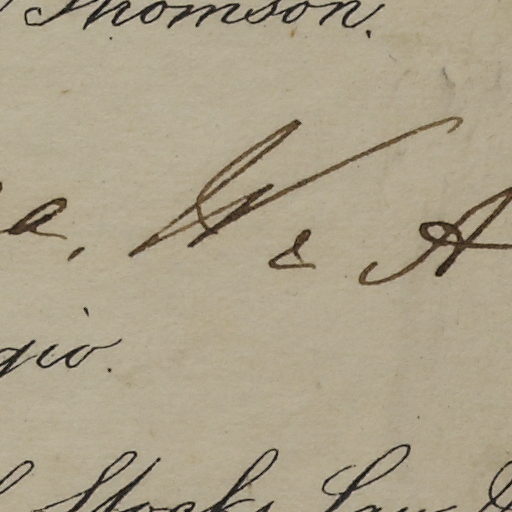 Thomson.
a, W & A
gio.
Stocks Law